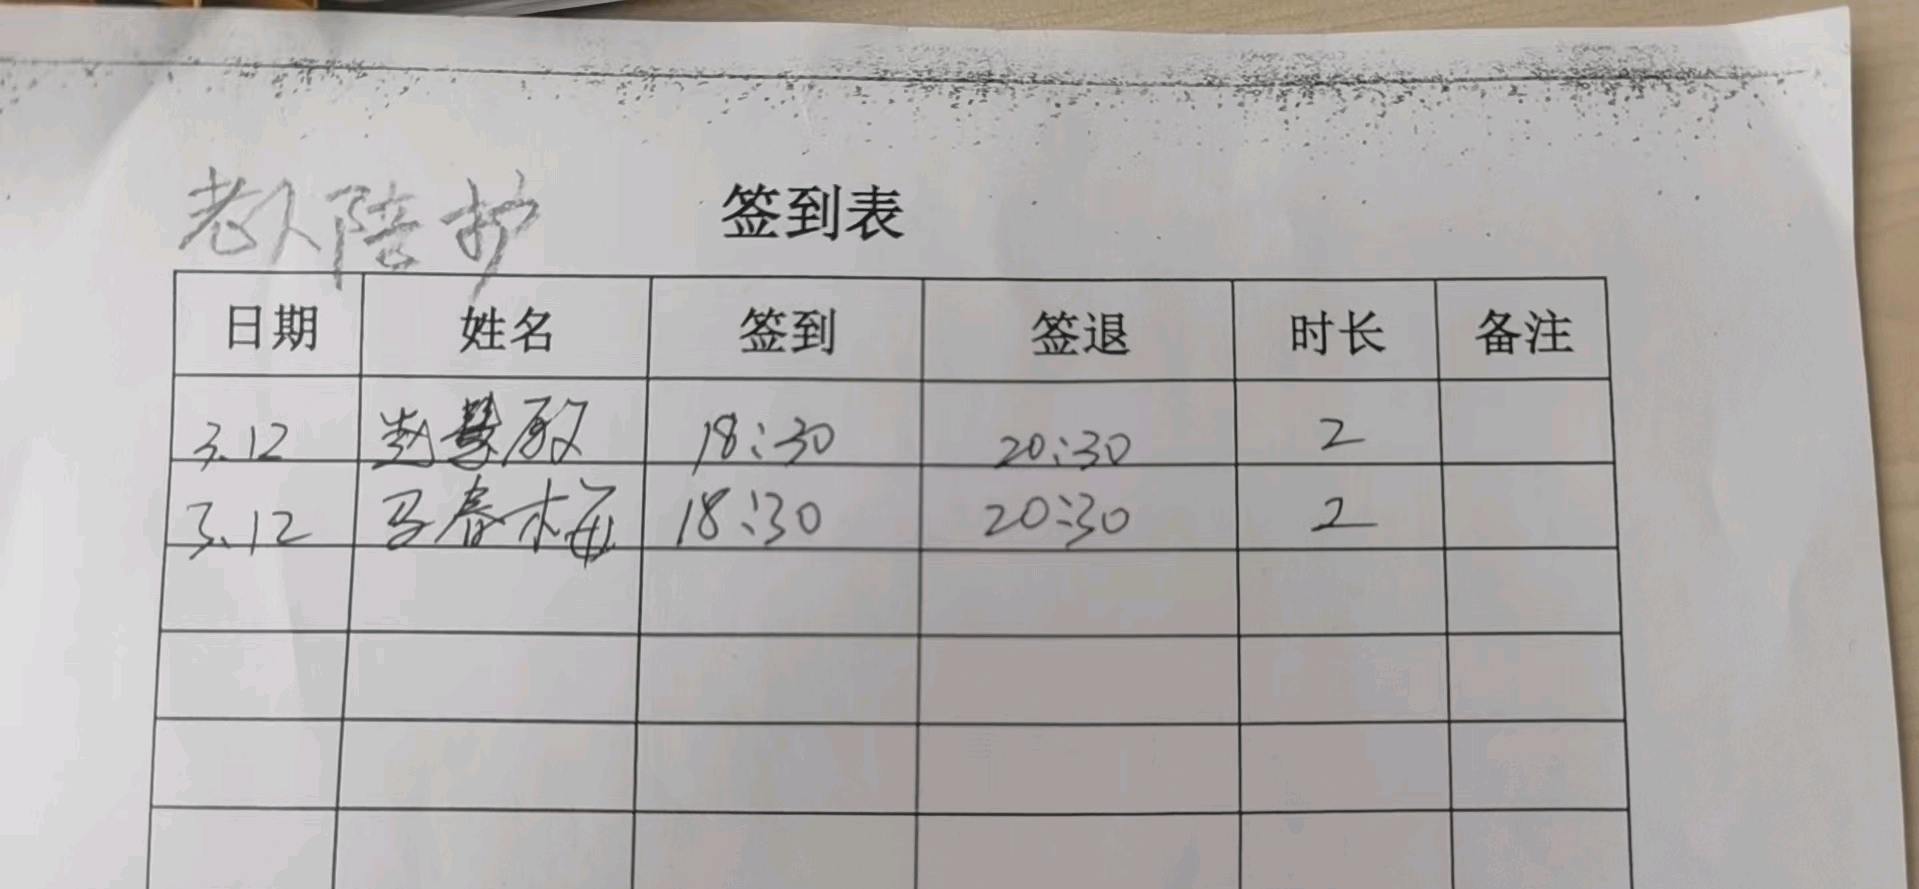 老人陪护 签到表
日期 姓名 签到 签退 时长 备注
3.12 赵慧敏 18:30 20:30 2
3.12 马春梅 18:30 20:30 2